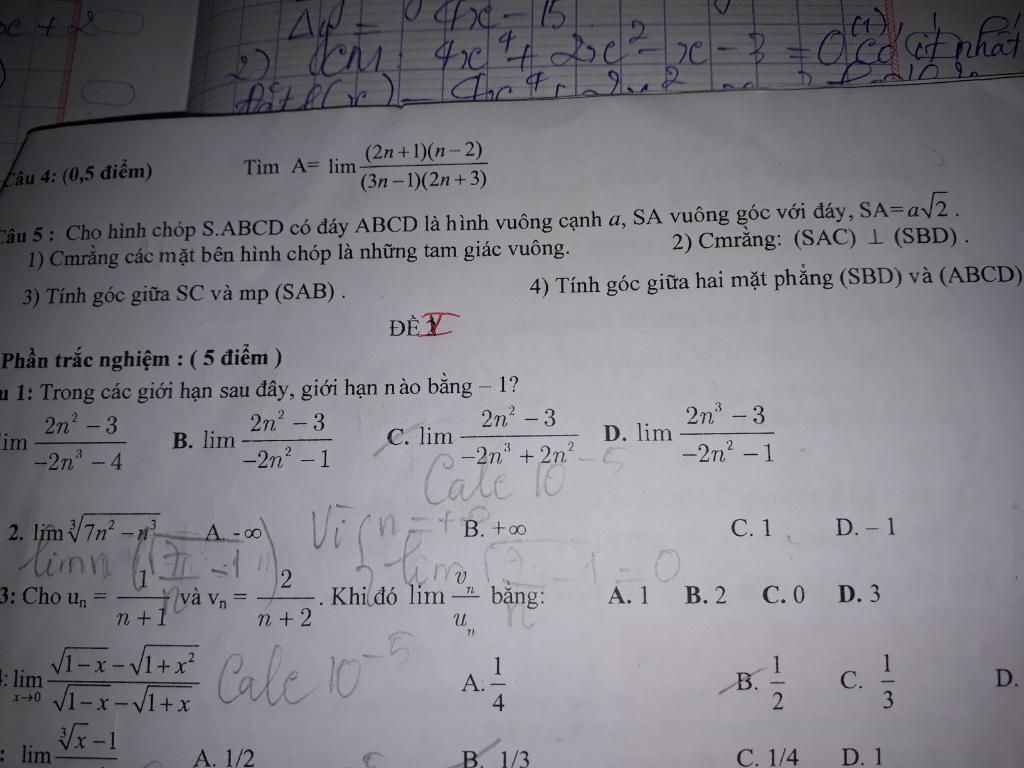 x + 2
Δy = 4x - 15
2) CM: 4x⁴ + 2x² - x - 3 = 0 (1) có ít nhất
Đặt f(x) =
Câu 4: (0,5 điểm) Tìm A= lim (2n+1)(n−2)/(3n−1)(2n+3)
Câu 5 : Cho hình chóp S.ABCD có đáy ABCD là hình vuông cạnh a, SA vuông góc với đáy, SA= a√2 .
1) Cmrằng các mặt bên hình chóp là những tam giác vuông. 2) Cmrằng: (SAC) ⊥ (SBD) .
3) Tính góc giữa SC và mp (SAB) . 4) Tính góc giữa hai mặt phẳng (SBD) và (ABCD)
ĐỀ
Phần trắc nghiệm : ( 5 điểm )
u 1: Trong các giới hạn sau đây, giới hạn nào bằng – 1?
im (2n² − 3)/(−2n³ − 4) B. lim (2n² − 3)/(−2n² − 1) C. lim (2n² − 3)/(−2n³ + 2n²) D. lim (2n³ − 3)/(−2n² − 1)
Calc 10⁻⁵
2. lim ∛(7n² − n³) A. -∞ B. +∞ C. 1 D. – 1
3: Cho uₙ = 1/(n+1) và vₙ = 2/(n+2) . Khi đó lim vₙ/uₙ bằng: A. 1 B. 2 C. 0 D. 3
: lim x→0 (√(1−x) − √(1+x²))/(√(1−x) − √(1+x)) Calc 10⁻⁵ A. 1/4 B. 1/2 C. 1/3 D.
: lim ∛x −1 A. 1/2 B. 1/3 C. 1/4 D. 1